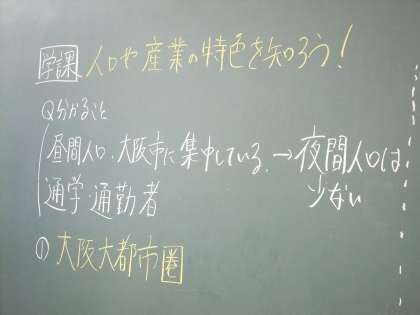 学課 人口や産業の特色を知ろう!
Q分かること
昼間人口.大阪市に集中している.→夜間人口は
通学・通勤者 少ない
① 大阪大都市圏